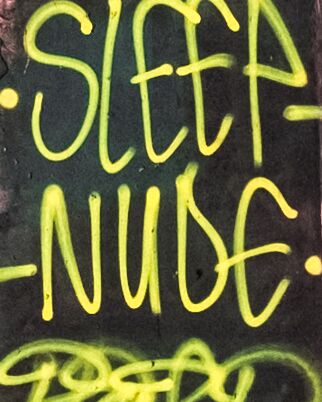 • SLEEP -
- NUDE •